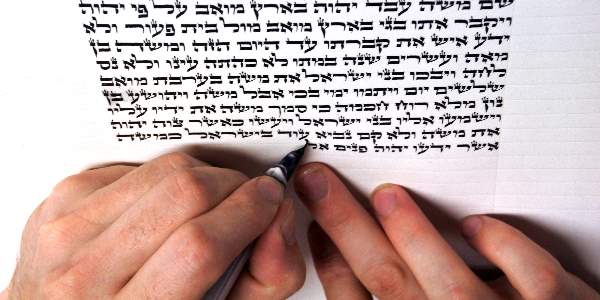 שם משה עבד יהוה בארץ מואב על פי יהוה
ויקבר אתו בגי בארץ מואב מול בית פעור ולא
ידע איש את קברתו עד היום הזה ומשה בן
מאה ועשרים שנה במתו לא כהתה עינו ולא נס
לחה ויבכו בני ישראל את משה בערבת מואב
שלשים יום ויתמו ימי בכי אבל משה ויהושע בן
נון מלא רוח חכמה כי סמך משה את ידיו עליו
וישמעו אליו בני ישראל ויעשו כאשר צוה יהוה
את משה ולא קם נביא עוד בישראל כמשה
אשר ידעו יהוה פנים אל